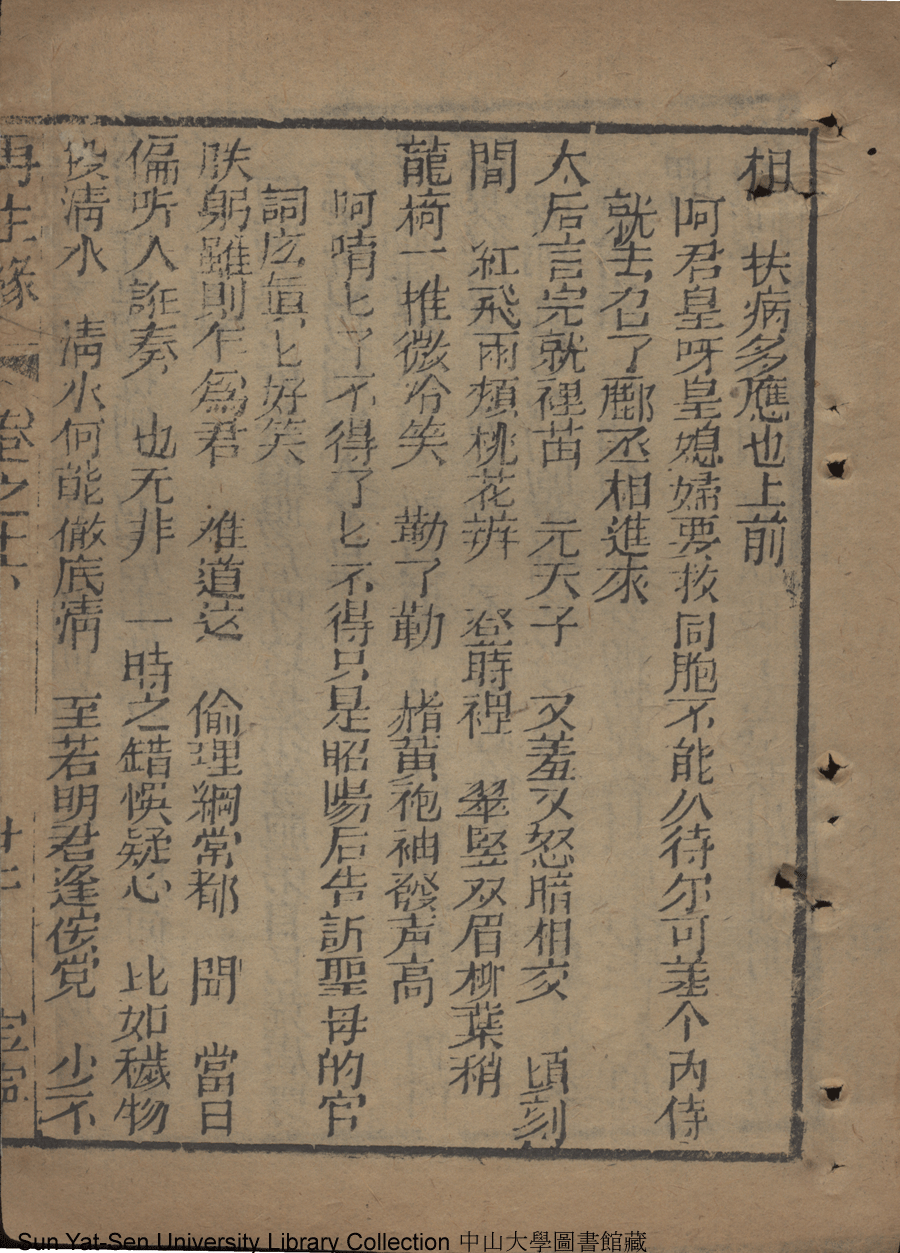 相　扶病多應也上前
呵君皇呀皇媳婦要救同胞不能久待尔可差个內侍
就去召了酈丞相進來
太后言完就裡苗　元天子　又羞又怒暗相交　頃刻
間　紅飛兩頰桃花辨　登時裡　翠竪双眉柳葉稍
龍椅一推微冷笑　勤了勤　赭黄袍袖發声高
呵唷匕了不得了匕不得只是昭陽后告訴聖母的官
詞庅眞匕好笑
朕躬雖則乍為君　难道这　倫理綱常都　問　當日
偏听人誑奏　也无非　一時之錯悞疑心　比如穢物
投清水　清水何能徹底清　至若明君逢侫党　少不
再生緣　卷之十六　廿七　宝宁
Sun Yat-Sen University Library Collection 中山大學圖書館藏